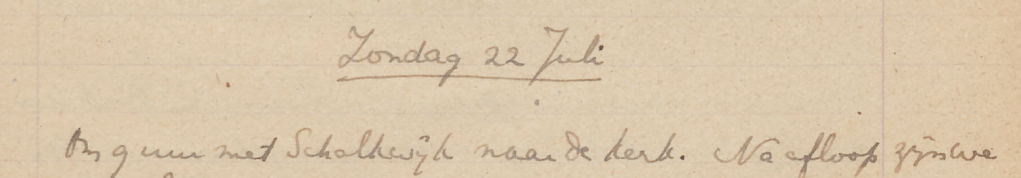 Zondag 22 Juli
Om 9 uur met Schalkwijk naar de kerk. Na afloop zijn we